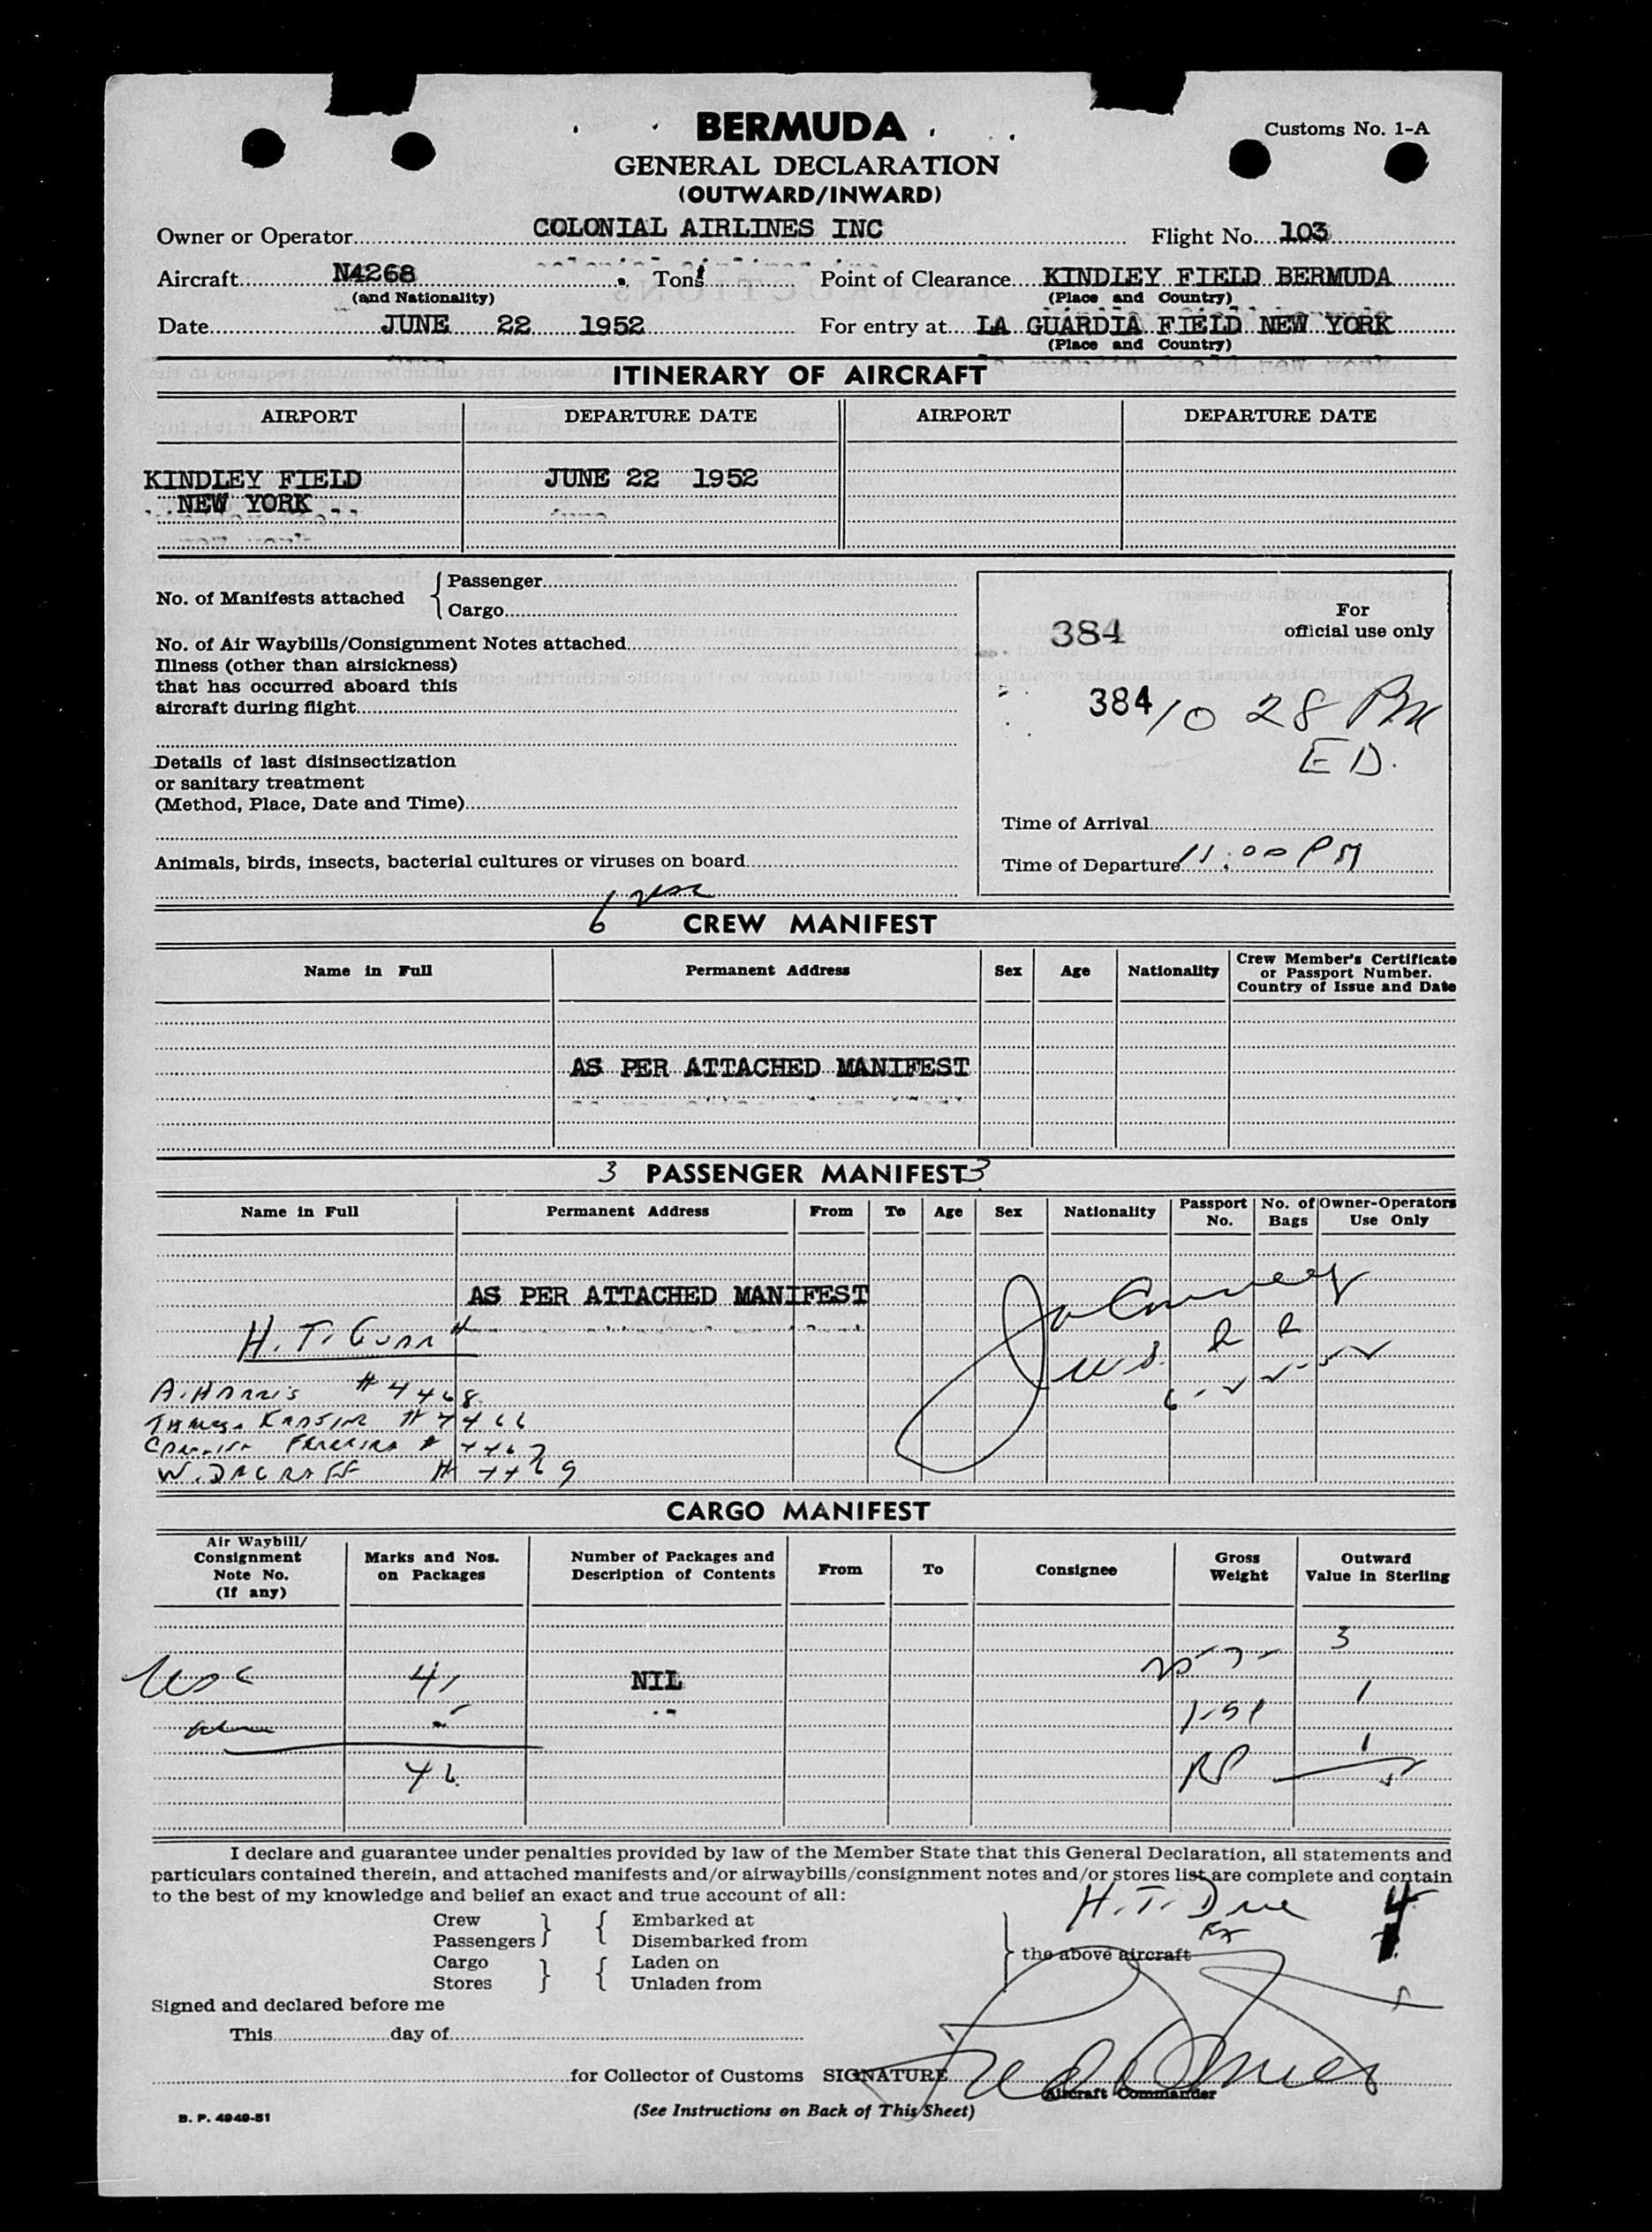 BERMUDA
Customs No. 1-A
GENERAL DECLARATION
(OUTWARD/INWARD)
Owner or Operator COLONIAL AIRLINES INC Flight No. 103
Aircraft N4268 Tons Point of Clearance KINDLEY FIELD BERMUDA
(and Nationality) (Place and Country)
Date JUNE 22 1952 For entry at LA GUARDIA FIELD NEW YORK
(Place and Country)
ITINERARY OF AIRCRAFT
AIRPORT DEPARTURE DATE AIRPORT DEPARTURE DATE
KINDLEY FIELD JUNE 22 1952
NEW YORK
No. of Manifests attached { Passenger
Cargo
No. of Air Waybills/Consignment Notes attached
Illness (other than airsickness)
that has occurred aboard this
aircraft during flight
Details of last disinsectization
or sanitary treatment
(Method, Place, Date and Time)
Animals, birds, insects, bacterial cultures or viruses on board
For
official use only
384
384 10 28 PM
E.D.
Time of Arrival
Time of Departure 11:00 PM
6
CREW MANIFEST
Name in Full Permanent Address Sex Age Nationality Crew Member's Certificate
or Passport Number.
Country of Issue and Date
AS PER ATTACHED MANIFEST
3 PASSENGER MANIFEST 3
Name in Full Permanent Address From To Age Sex Nationality Passport No. No. of Bags Owner-Operators Use Only
AS PER ATTACHED MANIFEST
H. T.
A. HARRIS # 4468
CARGO MANIFEST
Air Waybill/
Consignment
Note No.
(If any)
Marks and Nos.
on Packages
Number of Packages and
Description of Contents
From To Consignee
Gross
Weight
Outward
Value in Sterling
3
NIL
1
1
I declare and guarantee under penalties provided by law of the Member State that this General Declaration, all statements and
particulars contained therein, and attached manifests and/or airwaybills/consignment notes and/or stores list are complete and contain
to the best of my knowledge and belief an exact and true account of all:
Crew } { Embarked at
Passengers Disembarked from
Cargo } { Laden on
Stores Unladen from
} the above aircraft
H. T.
4
Signed and declared before me
This day of
for Collector of Customs SIGNATURE
Aircraft Commander
B. P. 4949-51
(See Instructions on Back of This Sheet)